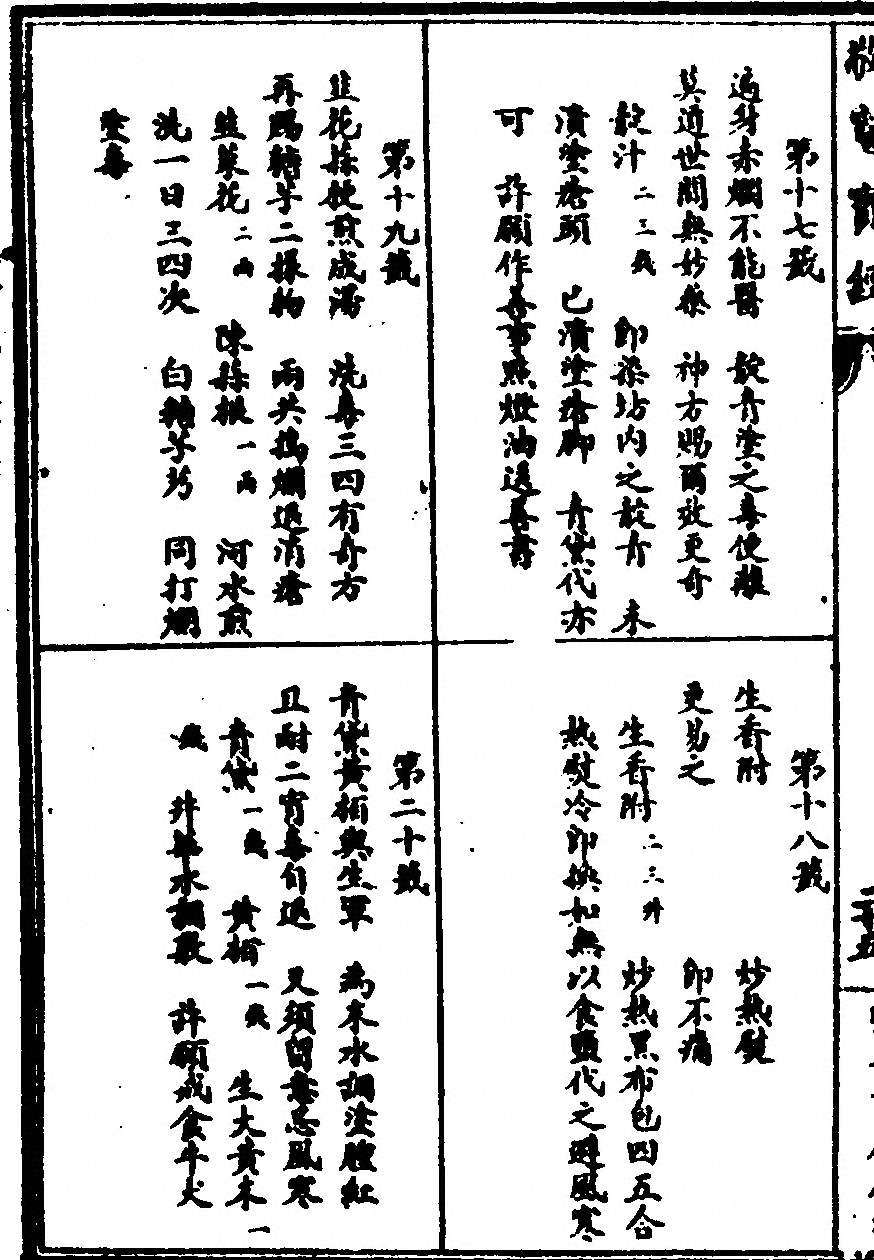 敬竈寶經
第十七號
遍身赤爛不能醫　靛青塗之毒便離
莫道世間無妙藥　神方賜爾效更奇
靛汁 二三錢　即染坊內之靛青　未
潰塗瘡頭　已潰塗瘡脚　青黛代亦
可　許願作善事點燈油送善書
第十八號
生香附　炒熱熨
更易之　即不痛
生香附 二三升　炒熱黑布包四五合
熱熨冷即換如無以食鹽代之避風寒
第十九號
韭花蘇梗煎成湯　洗毒三四有奇方
再賜糖芋二樣物　兩共搗爛退消瘡
韭菜花 二兩　陳蘇根 一兩　河水煎
洗一日三四次　白糖芋艿　同打爛
塗毒
第二十號
青黛黃栢與生軍　為末水調塗腫紅
且耐二宵毒自退　又須留意忌風寒
青黛 一錢　黃栢 一錢　生大黃末 一
錢　井華水調敷　許願戒食牛犬